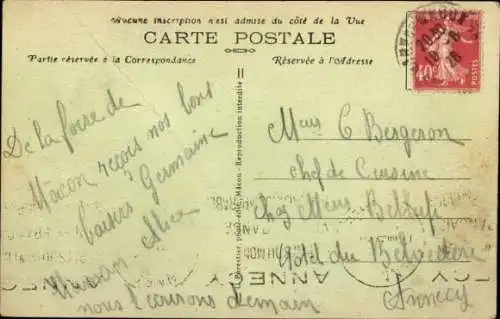 Aucune inscription n'est admise du côté de la Vue
CARTE POSTALE
Partie réservée à la Correspondance
Réservée à l'Adresse
40c
POSTES
De la foire de
Macon reçois nos bons
baisers Germaine
Alice
Maman
nous l'aurons demain
Reproduction interdite
Mâcon
Meus C Bergeron
chef de Cuisine
chez Meus
Hôtel du Belvédère
Annecy
ANNECY